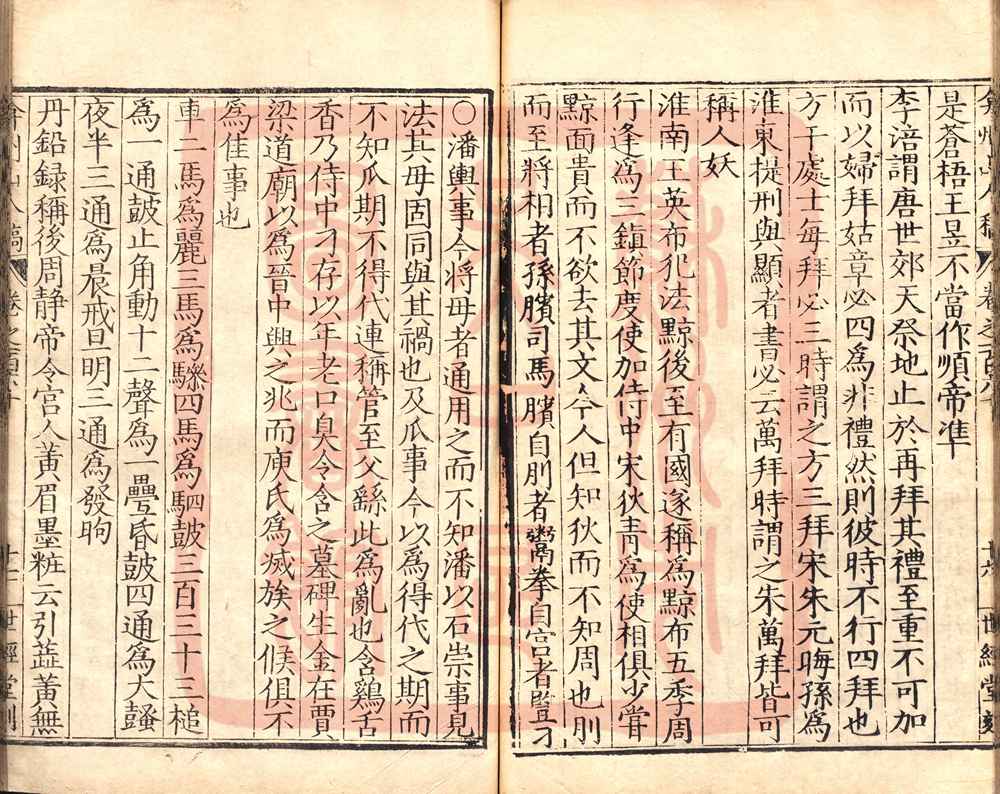 是蒼梧王昱不當作順帝準
李涪謂唐世郊天祭地止於再拜其禮至重不可加
而以婦拜姑章必四為非禮然則彼時不行四拜也
方干處士每拜必三時謂之方三拜宋朱元晦孫為
淮東提刑與顯者書必云萬拜時謂之朱萬拜皆可
稱人妖
淮南王英布犯法黥後至有國遂稱為黥布五季周
行逢為三鎮節度使加侍中宋狄青為使相俱少嘗
黥面貴而不欲去其文今人但知狄而不知周也刖
而至將相者孫臏司馬臏自刖者鬻拳自宮者豎刁
○潘輿事今將母者通用之而不知潘以石崇事見
法其母固同與其禍也及瓜事今以為得代之期而
不知瓜期不得代連稱管至父繇此為亂也含鷄舌
香乃侍中刁存以年老口臭令含之墓碑生金在賈
梁道廟以為晉中興之兆而庾氏為滅族之候俱不
為佳事也
車二馬為驪三馬為驂四馬為駟鼓三百三十三槌
為一通鼓止角動十二聲為一疊昏鼓四通為大鼜
夜半三通為晨戒旦明三通為發昫
丹鉛録稱後周靜帝令宮人黃眉墨粧云引蕋黃無
世經堂刻